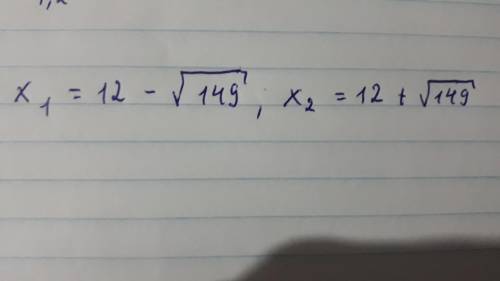 x₁ = 12 - √149 ; x₂ = 12 + √149